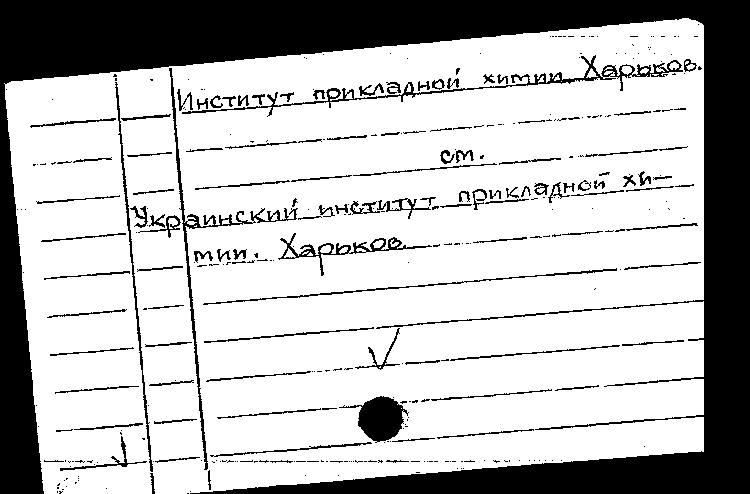 Институт прикладной химии. Харьков.
ст.
Украинский институт прикладной хи-
мии. Харьков